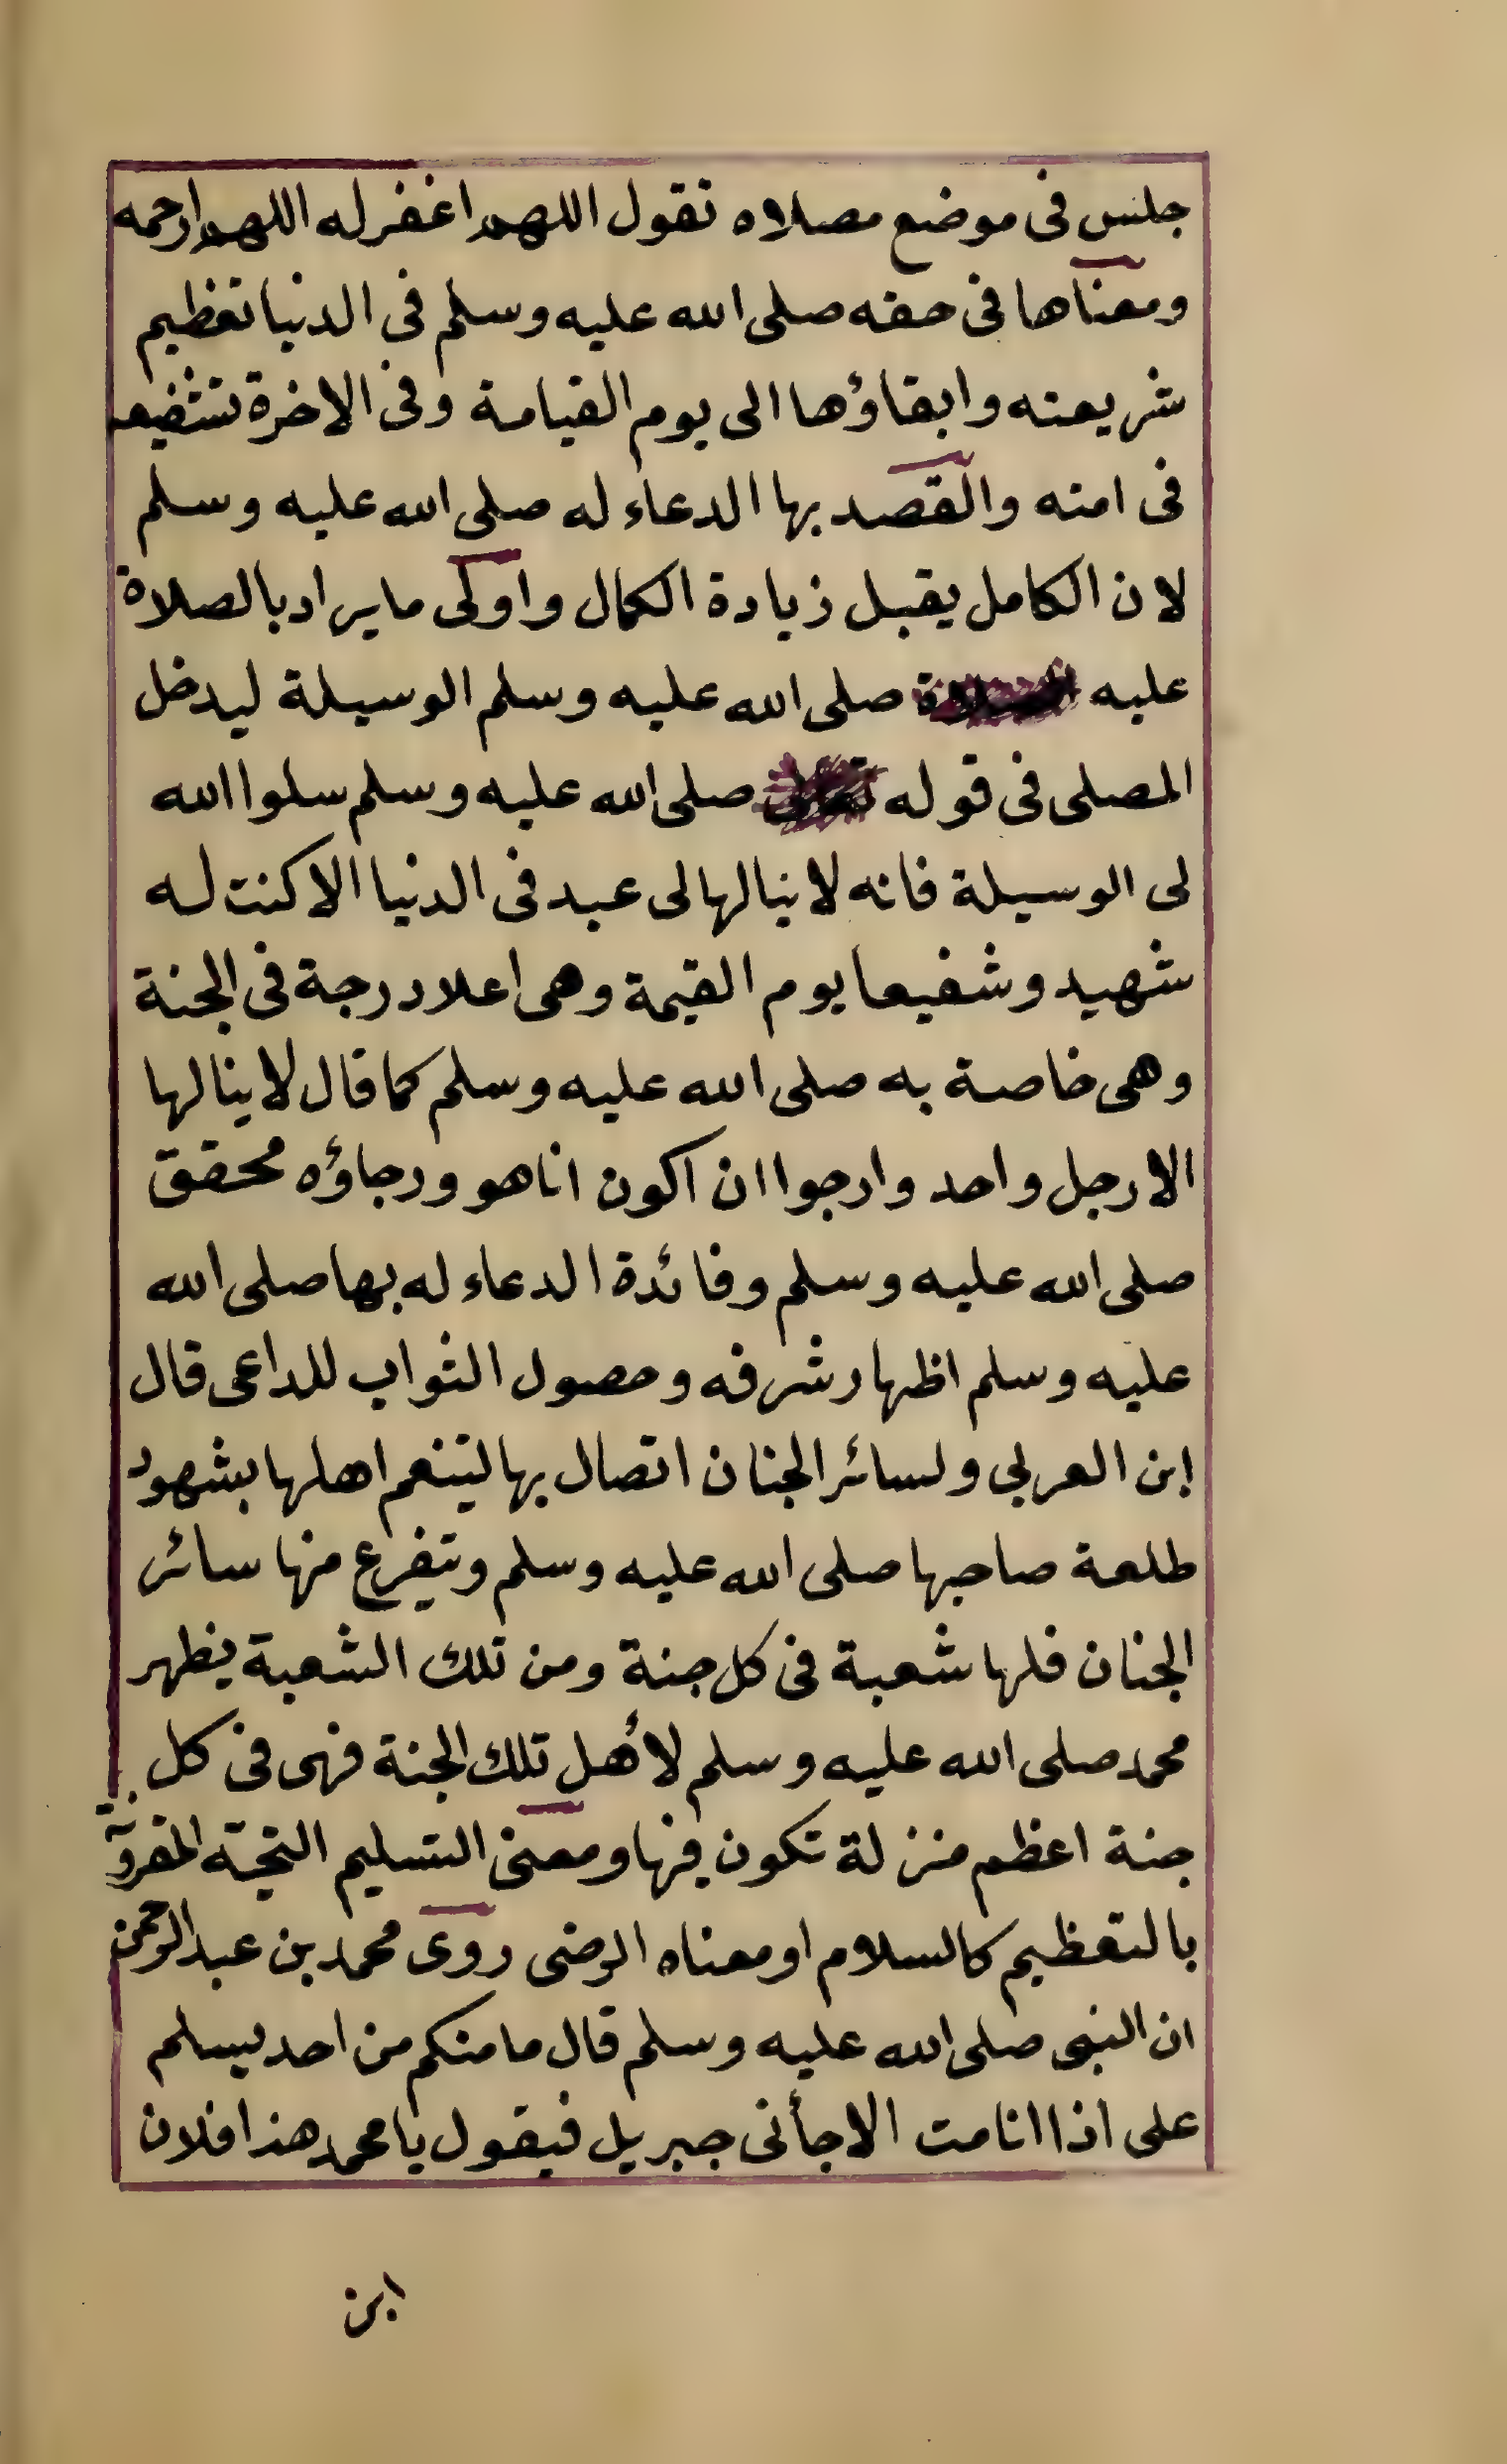 جلس فى موضع مصلاه تقول اللهم اغفر له اللهم ارحمه
ومعناها فى حقه صلى الله عليه وسلم فى الدنيا تعظيم
شريعته وابقاؤها الى يوم القيامة وفى الاخرة تشفيعه
فى امته والقصد بها الدعاء له صلى الله عليه وسلم
لان الكامل يقبل زيادة الكمال واولى ما يراد بالصلاة
عليه صلى الله عليه وسلم الوسيلة ليدخل
المصلى فى قوله صلى الله عليه وسلم سلوا الله
لى الوسيلة فانه لا ينالها لى عبد فى الدنيا الا كنت له
شهيد وشفيعا يوم القيمة وهى اعلا درجة فى الجنة
وهى خاصة به صلى الله عليه وسلم كما قال لا ينالها
الا رجل واحد وارجوا ان اكون انا هو ورجاؤه محقق
صلى الله عليه وسلم وفائدة الدعاء له بها صلى الله
عليه وسلم اظهار شرفه وحصول الثواب للداعى قال
ابن العربي ولسائر الجنان اتصال بها ليتنعم اهلها بشهود
طلعة صاحبها صلى الله عليه وسلم ويتفرع منها سائر
الجنان فلها شعبة فى كل جنة ومن تلك الشعبة يظهر
محمد صلى الله عليه وسلم لأهل تلك الجنة فهى فى كل
جنة اعظم منزلة تكون فيها ومعنى التسليم التحية المقرونة
بالتعظيم كالسلام او معناه الرضى روى محمد بن عبد الرحمن
ان النبى صلى الله عليه وسلم قال ما منكم من احد يسلم
على اذا انا مت الا جأنى جبريل فيقول يا محمد هذا فلان
ابن